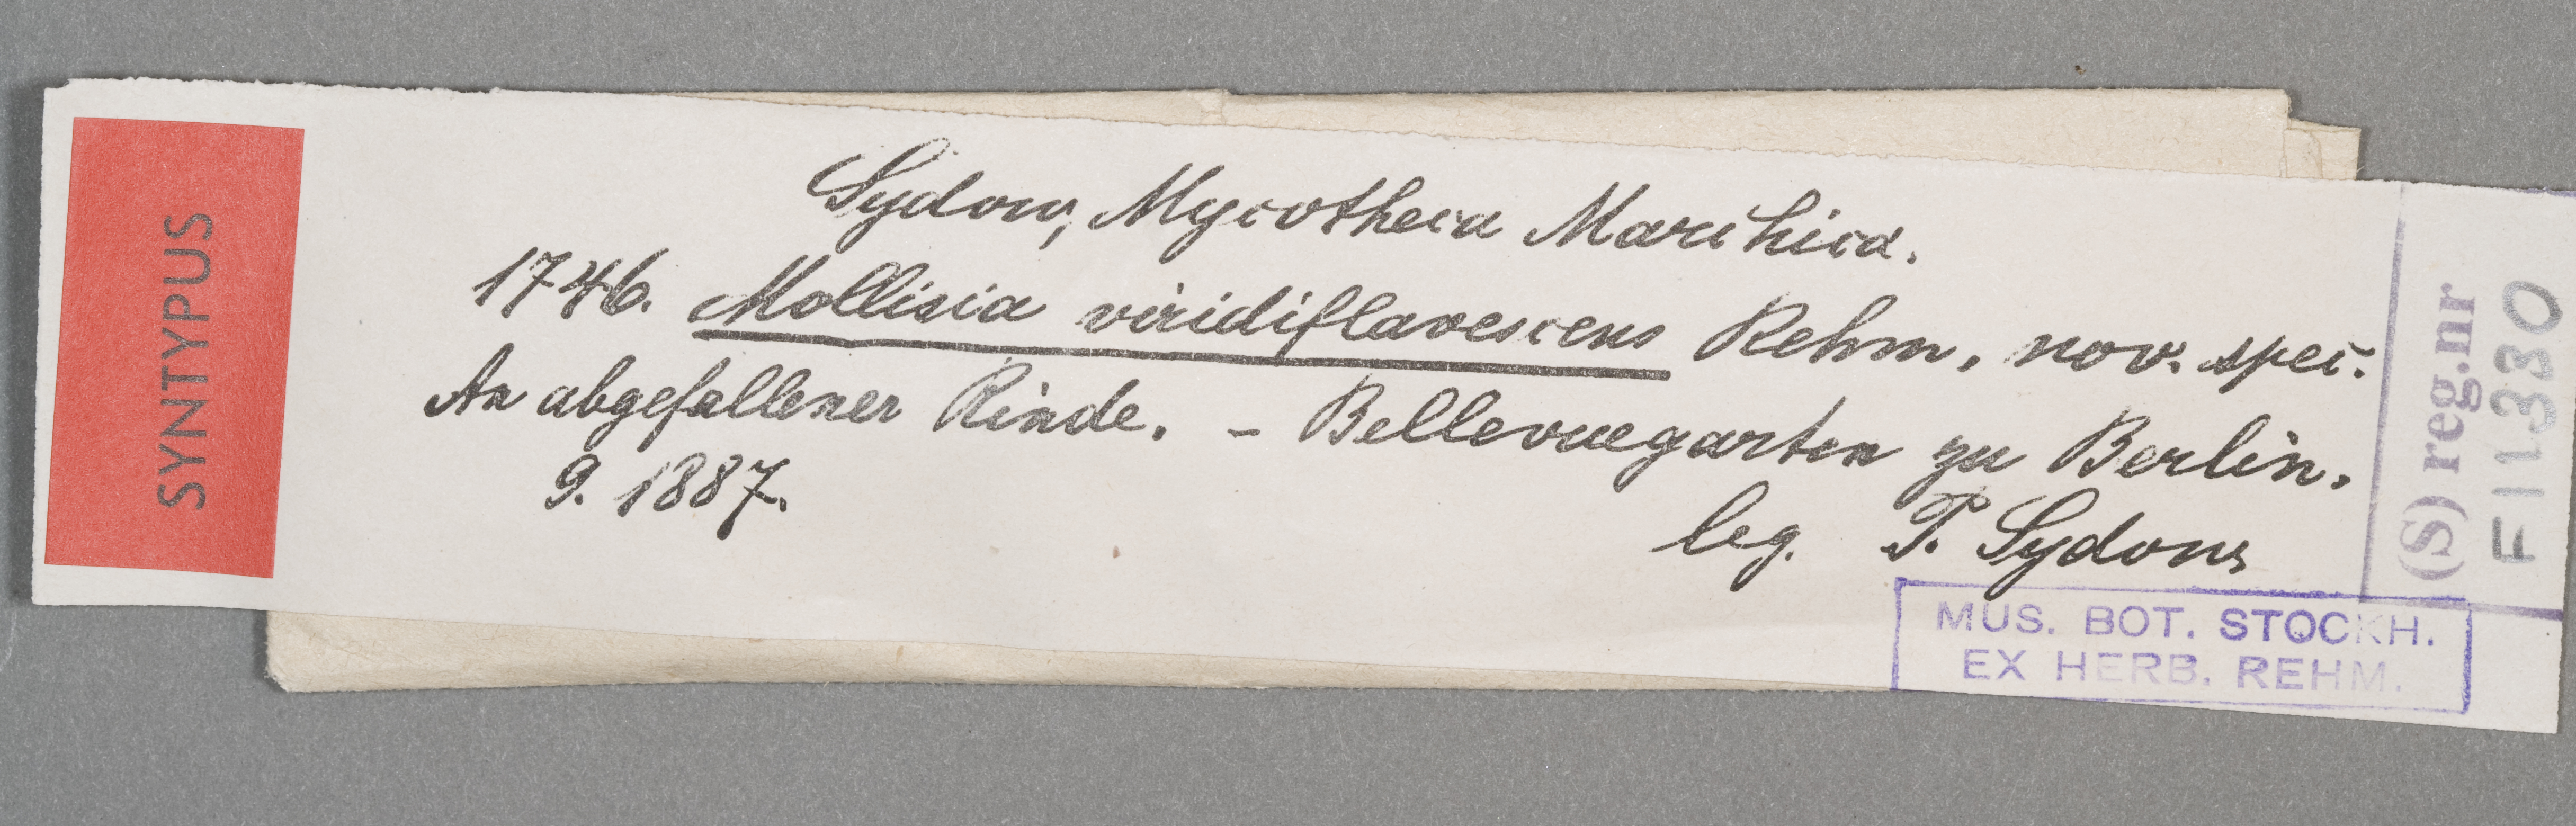 SYNTYPUS
Sydow, Mycotheca Marchica.
1746. Mollisia viridiflavescens Rehm, nov. spec.
An abgefallener Rinde. – Bellevuegarten zu Berlin.
9. 1887.
leg. P. Sydow
MUS. BOT. STOCKH.
EX HERB. REHM.
(S) reg.nr
F11330